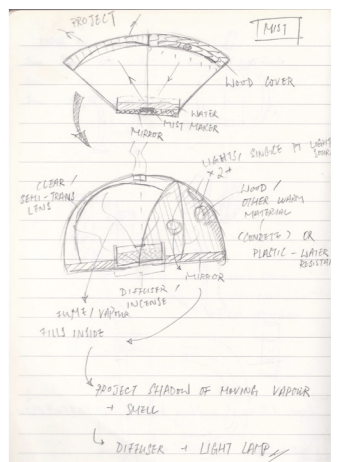 PROJECT
MIST
WOOD COVER
WATER
MIST MAKER
MIRROR
LIGHTS / SINGLE PT LIGHT
× 2+
CLEAR /
SEMI-TRANS
LENS
WOOD /
OTHER WARM
MATERIAL
(CONRETE) OR
PLASTIC - WATER
MIRROR
DIFFUSER /
INCENSE
FUME / VAPOUR
FILLS INSIDE
PROJECT SHADOW OF MOVING VAPOUR
+ SMELL
DIFFUSER + LIGHT LAMP //